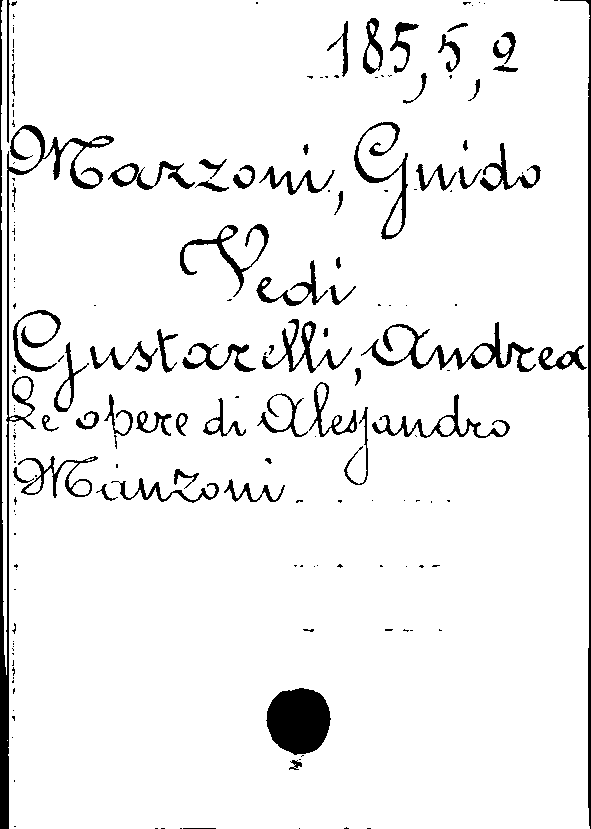 185,5,2
Mazzoni, Guido
Vedi
Gustarelli, Andrea
Le opere di Alessandro
Manzoni